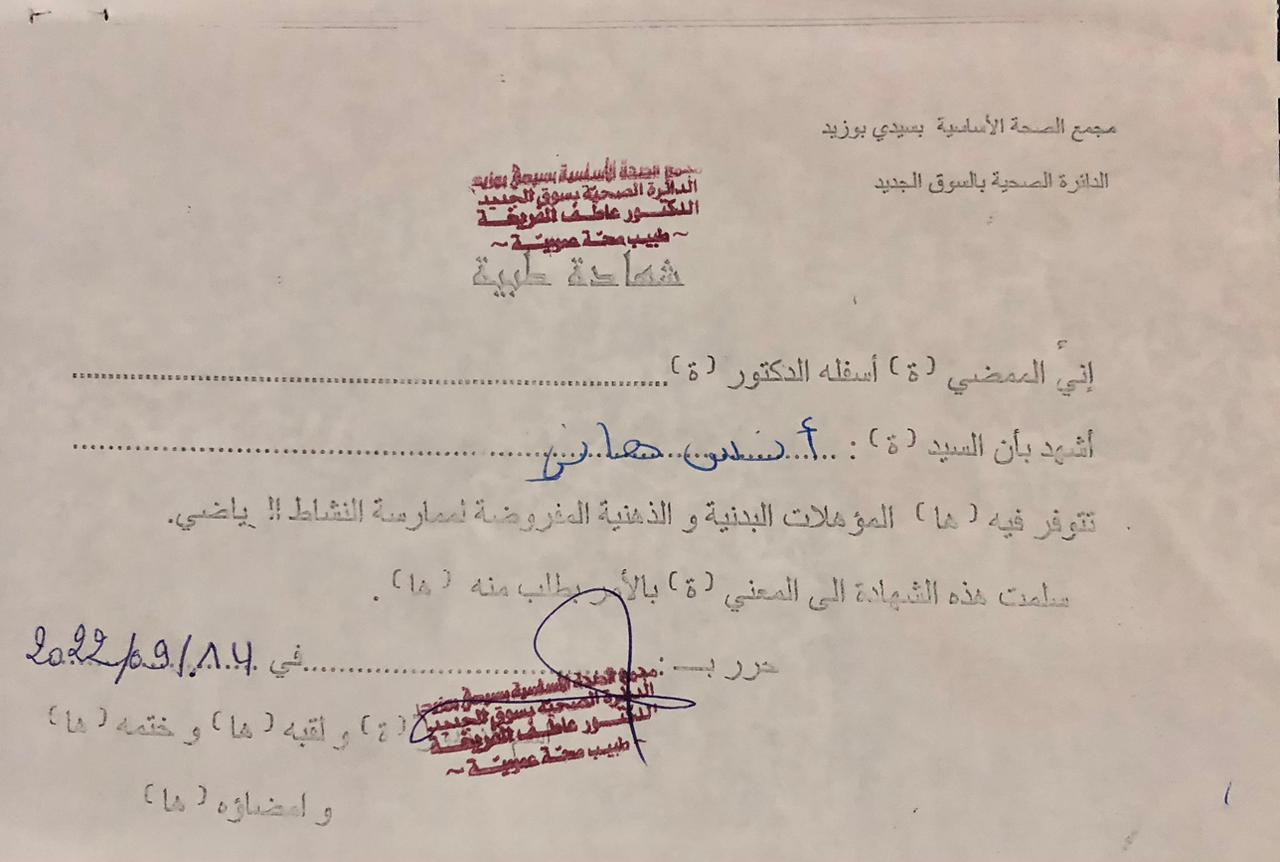 مجمع الصحة الأساسية بسيدي بوزيد
الدائرة الصحية بالسوق الجديد
مجمع الصحة الأساسية بسيدي بوزيد
الدائرة الصحية بسوق الجديد
الدكتور عاطف
~ طبيب صحة عمومية ~
شهادة طبية
إنيّ الممضي (ة) أسفله الدكتور (ة)
أشهد بأن السيد (ة) : أنس هاني
تتوفر فيه (ها) المؤهلات البدنية و الذهنية المفروضة لممارسة النشاط !! ياضي.
سلمت هذه الشهادة الى المعني (ة) بالأمر بطلب منه (ها) .
حرر بـــ : في 2022/09/14
مجمع الصحة الأساسية بسيدي بوزيد
الدائرة الصحية بسوق الجديد
الدكتور عاطف
~ طبيب صحة عمومية ~
(ة) و لقبه (ها) و ختمه (ها)
و امضاؤه (ها)